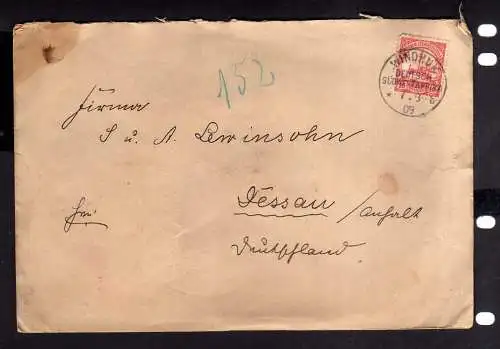 152
WINDHUK
DEUTSCH-
SÜDWESTAFRIKA
09
Firma
S. u. A. Lewinsohn
Dessau /Anhalt
Deutschland